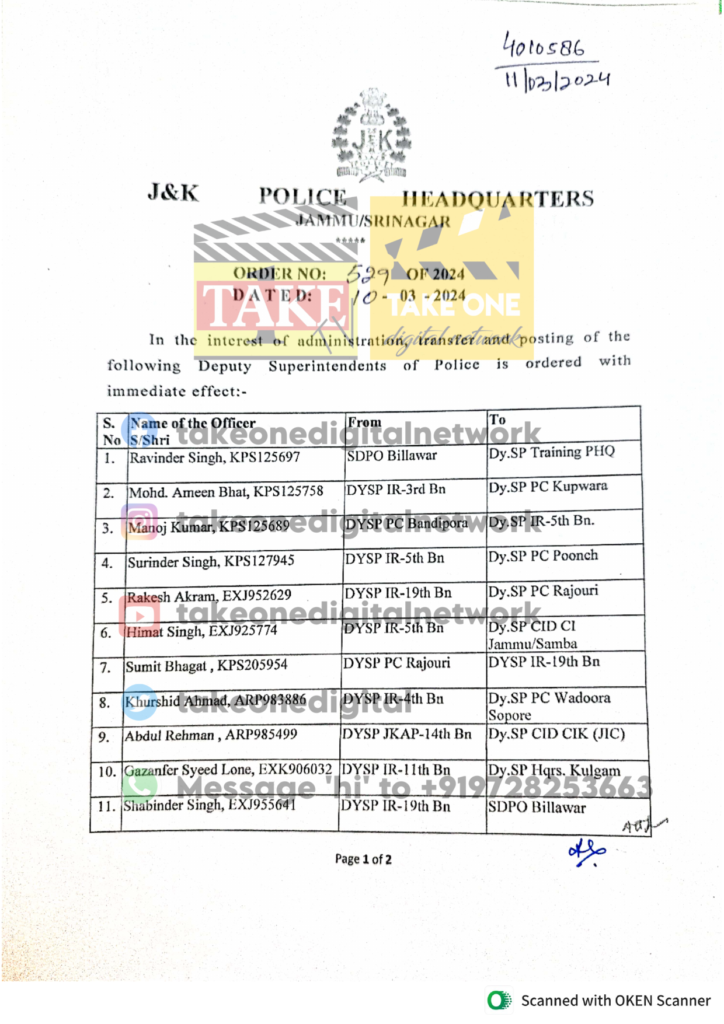 4010586
11/03/2024
J&K
J&K POLICE HEADQUARTERS
JAMMU/SRINAGAR
*****
ORDER NO: 529 OF 2024
DATED: 10 - 03 - 2024
TAKE
TV
TAKE ONE
digital network
In the interest of administration, transfer and posting of the
following Deputy Superintendents of Police is ordered with
immediate effect:-
S. No Name of the Officer S/Shri From To
takeonedigitalnetwork
1. Ravinder Singh, KPS125697 SDPO Billawar Dy.SP Training PHQ
2. Mohd. Ameen Bhat, KPS125758 DYSP IR-3rd Bn Dy.SP PC Kupwara
3. Manoj Kumar, KPS125689 DYSP PC Bandipora Dy.SP IR-5th Bn.
takeonedigitalnetwork
4. Surinder Singh, KPS127945 DYSP IR-5th Bn Dy.SP PC Poonch
5. Rakesh Akram, EXJ952629 DYSP IR-19th Bn Dy.SP PC Rajouri
takeonedigitalnetwork
6. Himat Singh, EXJ925774 DYSP IR-5th Bn Dy.SP CID CI
Jammu/Samba
7. Sumit Bhagat , KPS205954 DYSP PC Rajouri DYSP IR-19th Bn
8. Khurshid Ahmad, ARP983886 DYSP IR-4th Bn Dy.SP PC Wadoora
Sopore
takeonedigital
9. Abdul Rehman , ARP985499 DYSP JKAP-14th Bn Dy.SP CID CIK (JIC)
10. Gazanfer Syeed Lone, EXK906032 DYSP IR-11th Bn Dy.SP Hqrs. Kulgam
Message 'hi' to +919728253663
11. Shabinder Singh, EXJ955641 DYSP IR-19th Bn SDPO Billawar
Page 1 of 2
Scanned with OKEN Scanner